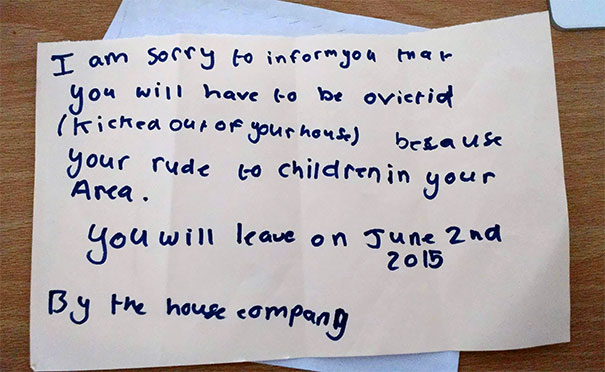 I am sorry to inform you that
you will have to be ovictid
(kicked out of your house) because
your rude to children in your
Area.
You will leave on June 2nd
2015
By the house company